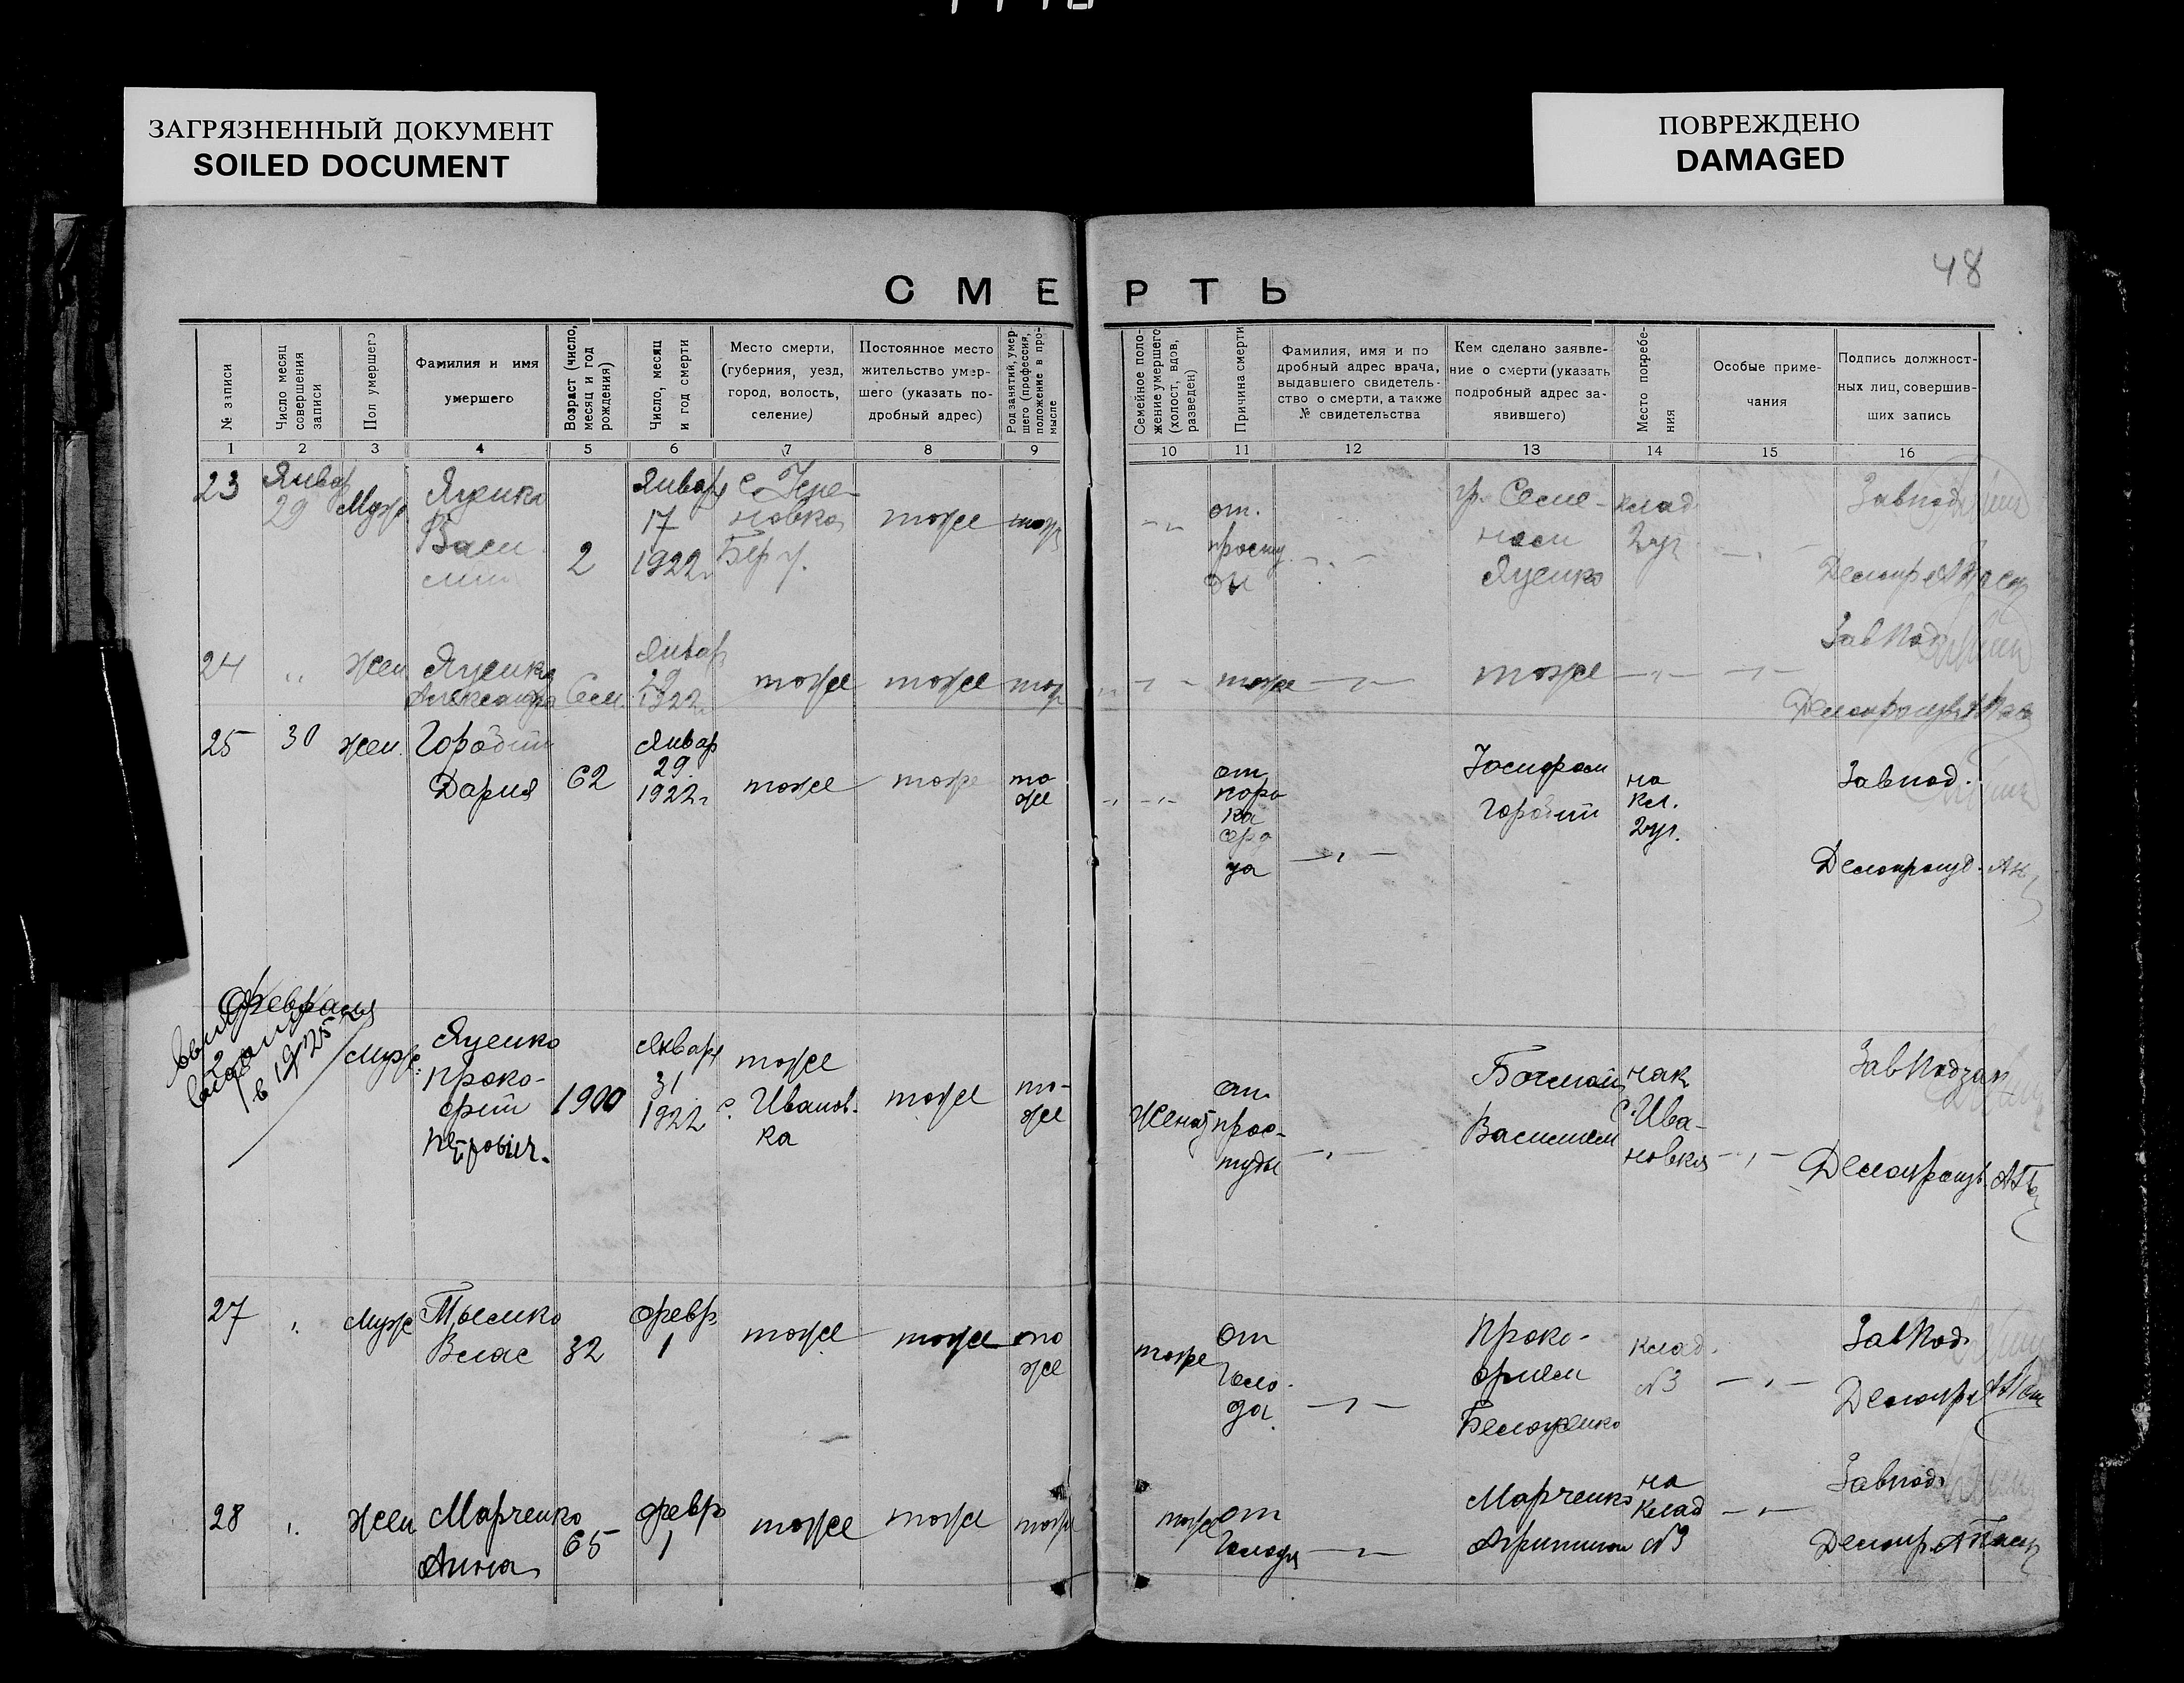 ЗАГРЯЗНЕННЫЙ ДОКУМЕНТ
SOILED DOCUMENT
ПОВРЕЖДЕНО
DAMAGED
48
СМЕРТЬ
№ записи
Число месяц совершения записи
Пол умершего
Фамилия и имя умершего
Возраст (число, месяц и год рождения)
Число, месяц и год смерти
Место смерти, (губерния, уезд, город, волость, селение)
Постоянное место жительство умершего (указать подробный адрес)
Род занятий, умершего (профессия, положение в промысле
Семейное положение умершего (холост, вдов, разведен)
Причина смерти
Фамилия, имя и подробный адрес врача, выдавшего свидетельство о смерти, а также № свидетельства
Кем сделано заявление о смерти (указать подробный адрес заявившего)
Место погребения
Особые примечания
Подпись должностных лиц, совершивших запись
1 2 3 4 5 6 7 8 9 10 11 12 13 14 15 16
23 Январ 29 Муж Яценко Васи 2 Январ 17 1922г. тоже тоже
от. просту ды гр. Семе- ном Яценко клад. Завпод
24 " Жен Яценко Александра 6 м. Январ 1922г. тоже тоже тож
тоже тоже ЗавПод
25 30 жен. Дария 62 Январ 29. 1922г. тоже тоже то же
от поро ка серд ца Иосифом на кл. Завпод. Делопроизв.
Февраля
2
в 1925
Муж. Яценко Проко- фий Петрович. 1900 Январ 31 1922 тоже с. Иванов- ка тоже то- же
Женат от прос- туды Василием с. Ива- новка Делопроизв.
27 " Муж Влас 32 февр 1 тоже тоже то же
тоже от голо- да. Проко- фием клад. №3 ЗавПод. Делопр
28 " Жен Марченко Анна 65 февр 1 тоже тоже тоже
тоже от голода Марченко на клад №3 Завпод. Делопр.